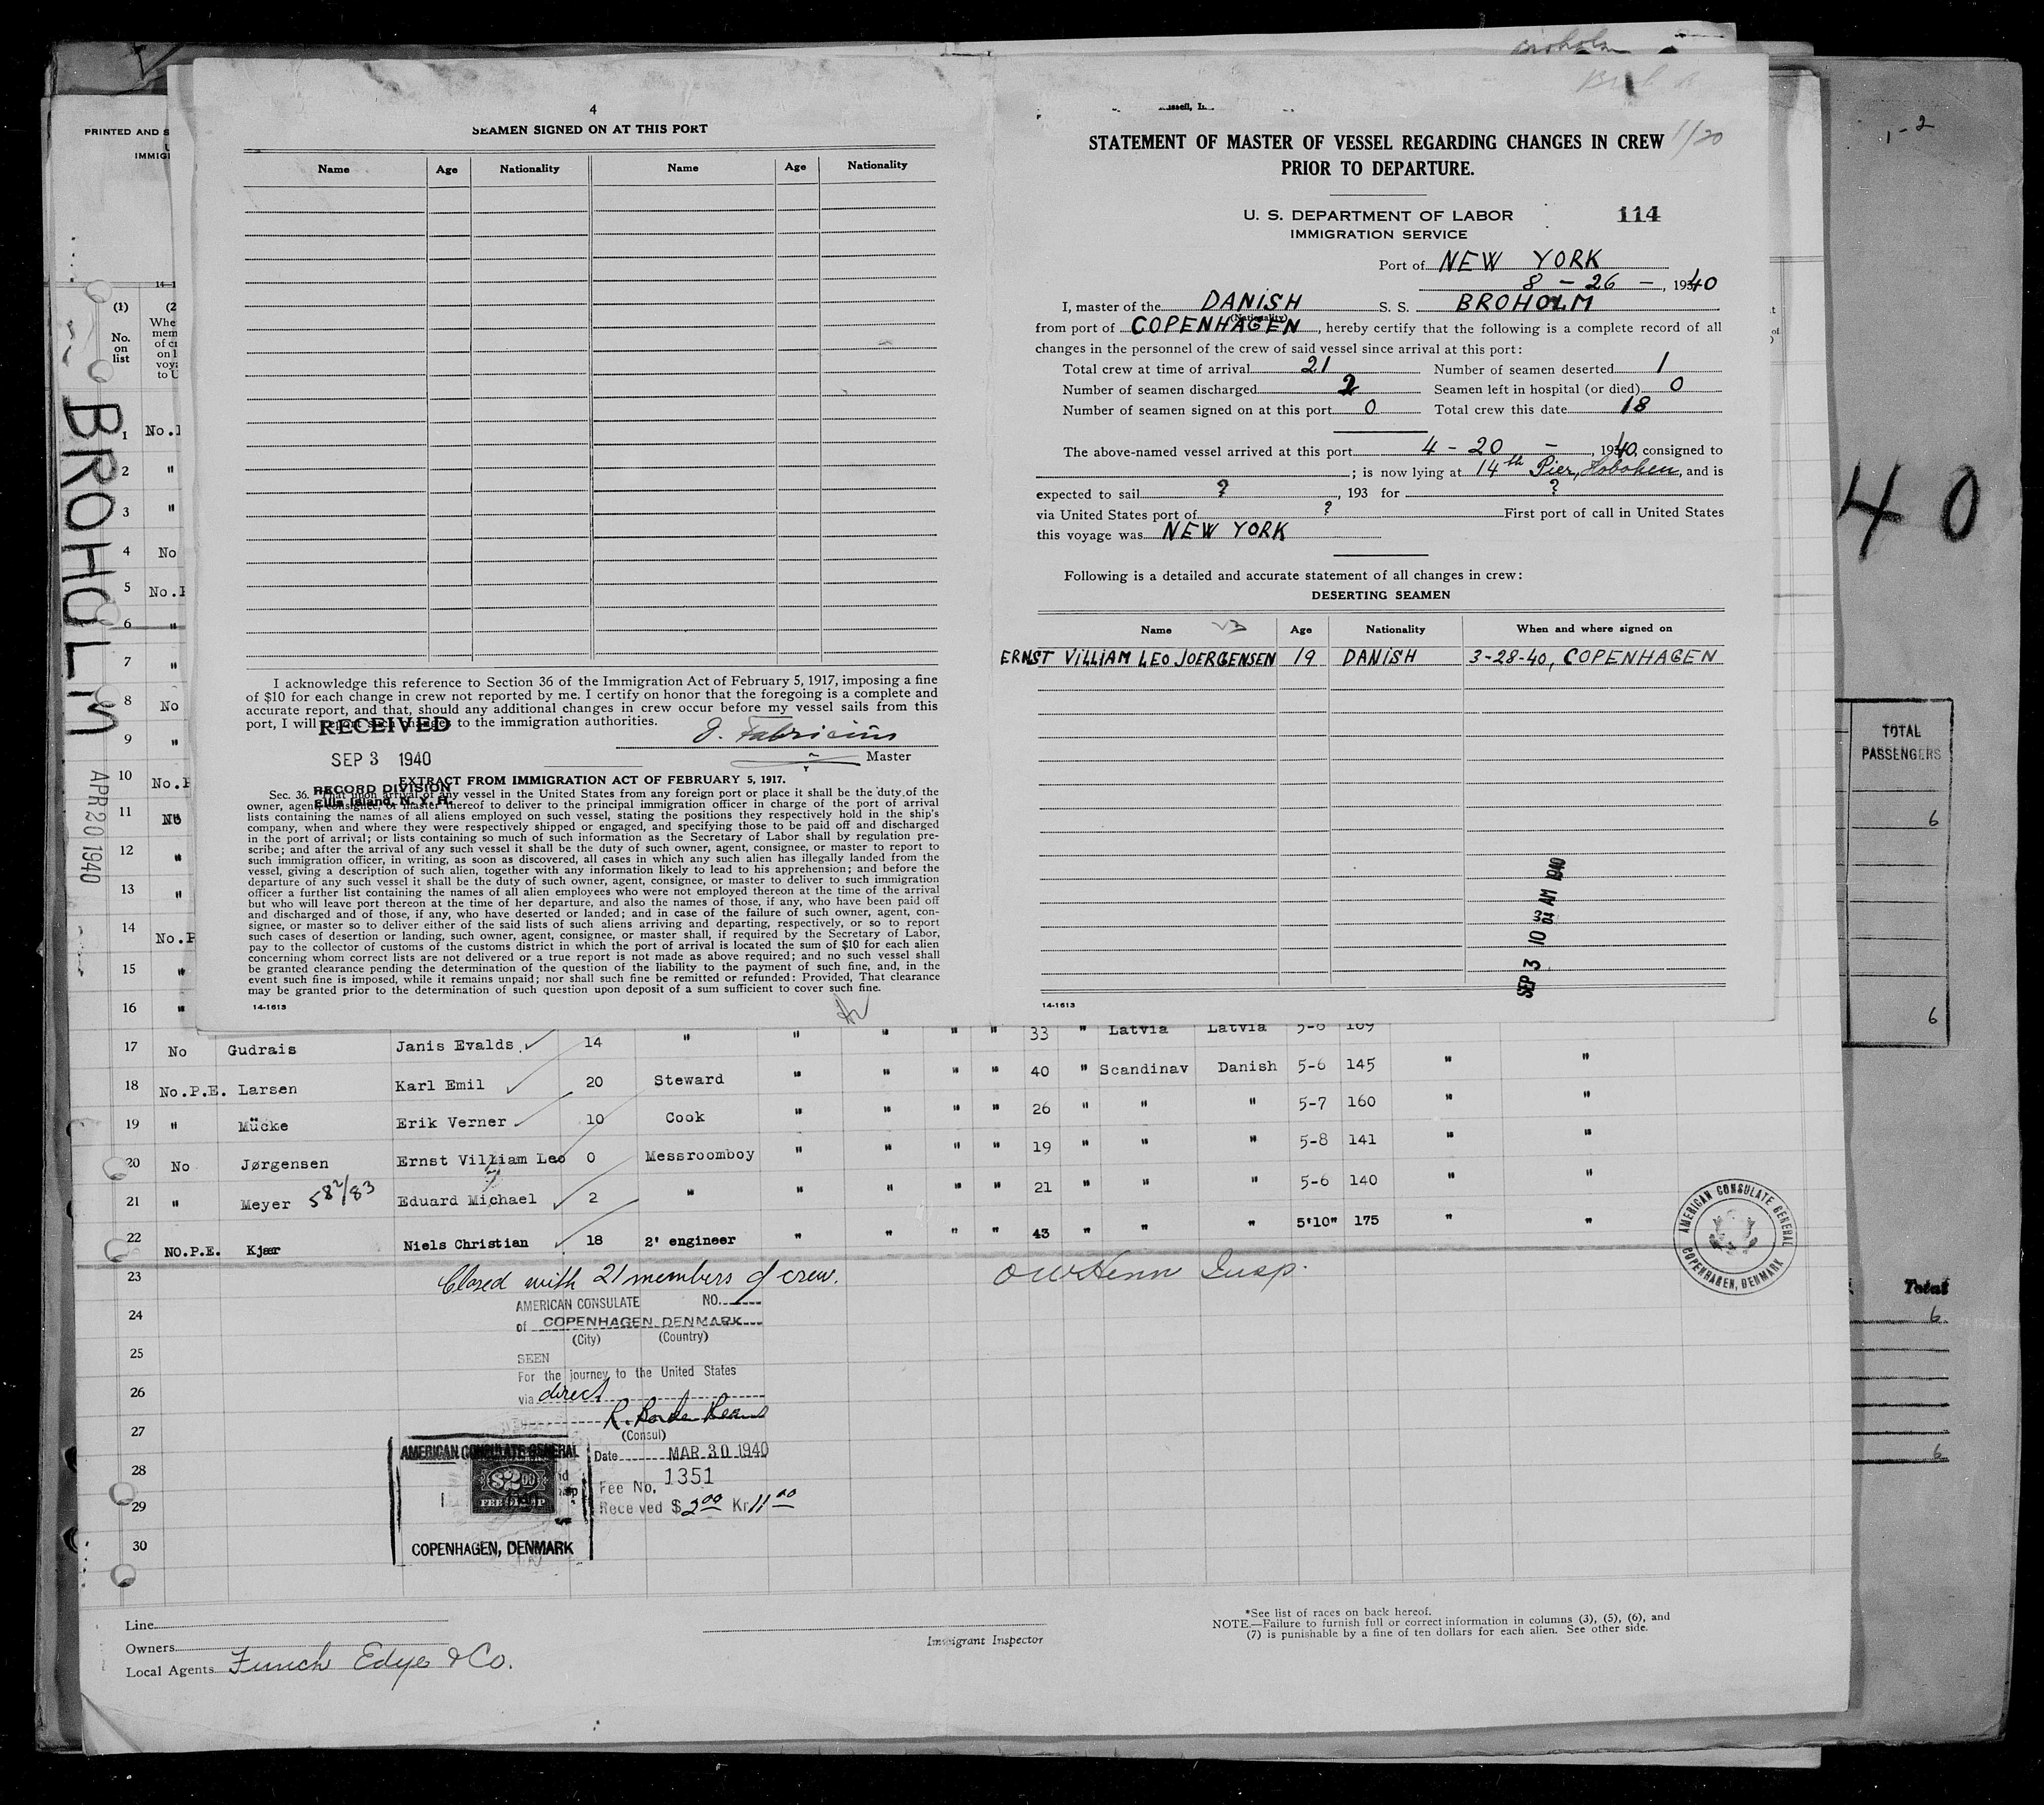 Broholm
4
SEAMEN SIGNED ON AT THIS PORT
Name Age Nationality Name Age Nationality
I acknowledge this reference to Section 36 of the Immigration Act of February 5, 1917, imposing a fine
of $10 for each change in crew not reported by me. I certify on honor that the foregoing is a complete and
accurate report, and that, should any additional changes in crew occur before my vessel sails from this
port, I will report such changes to the immigration authorities.
RECEIVED
SEP 3 1940
RECORD DIVISION
Ellis Island, N. Y. H.
J. Fabricius
Master
EXTRACT FROM IMMIGRATION ACT OF FEBRUARY 5, 1917.
Sec. 36. That upon arrival of any vessel in the United States from any foreign port or place it shall be the duty of the
owner, agent, consignee, or master thereof to deliver to the principal immigration officer in charge of the port of arrival
lists containing the names of all aliens employed on such vessel, stating the positions they respectively hold in the ship's
company, when and where they were respectively shipped or engaged, and specifying those to be paid off and discharged
in the port of arrival; or lists containing so much of such information as the Secretary of Labor shall by regulation pre-
scribe; and after the arrival of any such vessel it shall be the duty of such owner, agent, consignee, or master to report to
such immigration officer, in writing, as soon as discovered, all cases in which any such alien has illegally landed from the
vessel, giving a description of such alien, together with any information likely to lead to his apprehension; and before the
departure of any such vessel it shall be the duty of such owner, agent, consignee, or master to deliver to such immigration
officer a further list containing the names of all alien employees who were not employed thereon at the time of the arrival
but who will leave port thereon at the time of her departure, and also the names of those, if any, who have been paid off
and discharged and of those, if any, who have deserted or landed; and in case of the failure of such owner, agent, con-
signee, or master so to deliver either of the said lists of such aliens arriving and departing, respectively, or so to report
such cases of desertion or landing, such owner, agent, consignee, or master shall, if required by the Secretary of Labor,
pay to the collector of customs of the customs district in which the port of arrival is located the sum of $10 for each alien
concerning whom correct lists are not delivered or a true report is not made as above required; and no such vessel shall
be granted clearance pending the determination of the question of the liability to the payment of such fine, and, in the
event such fine is imposed, while it remains unpaid; nor shall such fine be remitted or refunded: Provided, That clearance
may be granted prior to the determination of such question upon deposit of a sum sufficient to cover such fine.
14-1613
STATEMENT OF MASTER OF VESSEL REGARDING CHANGES IN CREW
PRIOR TO DEPARTURE.
1/20
U. S. DEPARTMENT OF LABOR
IMMIGRATION SERVICE
114
Port of NEW YORK
8 - 26 -, 1940
I, master of the DANISH S. S. BROHOLM
(Nationality)
from port of COPENHAGEN, hereby certify that the following is a complete record of all
changes in the personnel of the crew of said vessel since arrival at this port:
Total crew at time of arrival 21 Number of seamen deserted 1
Number of seamen discharged 2 Seamen left in hospital (or died) 0
Number of seamen signed on at this port 0 Total crew this date 18
The above-named vessel arrived at this port 4 - 20 -, 1940, consigned to
; is now lying at 14th Pier, Hoboken, and is
expected to sail ?, 193 for ?
via United States port of ? First port of call in United States
this voyage was NEW YORK
Following is a detailed and accurate statement of all changes in crew:
DESERTING SEAMEN
Name Age Nationality When and where signed on
ERNST VILLIAM LEO JOERGENSEN 19 DANISH 3-28-40, COPENHAGEN
SEP 3 10 AM 1940
14-1613
1-2
40
TOTAL
PASSENGERS
6
6
Total
6
6
PRINTED AND S
IMMIG
14-1
(1) (2
No. on list
Whe
mem
of cr
on l
voya
to U
BROHOLM
APR 20 1940
1 No.P
2 "
3 "
4 No
5 No.P
6 "
7 "
8 No
9 "
10 No.P
11 No
12 "
13 "
14 No.P
15 "
16 " 33 " Latvia Latvia 5-6 169
17 No Gudrais Janis Evalds 14 " " " " "
18 No.P.E. Larsen Karl Emil 20 Steward " " " " 40 " Scandinav Danish 5-6 145 " "
19 " Mücke Erik Verner 10 Cook " " " " 26 " " " 5-7 160 " "
20 No Jørgensen Ernst Villiam Leo 0 Messroomboy " " " " 19 " " " 5-8 141 " "
21 " Meyer 582/83 Eduard Michael 2 " " " " " 21 " " " 5-6 140 " "
22 NO.P.E. Kjær Niels Christian 18 2' engineer " " " " 43 " " " 5'10" 175 " "
23 Closed with 21 members of crew. O W Henn Insp.
24
25
26
27
28
29
30
AMERICAN CONSULATE NO.
of COPENHAGEN DENMARK
(City) (Country)
SEEN
For the journey to the United States
via direct
(Consul)
Date MAR 30 1940
Fee No. 1351
Received $ 2 00 Kr 11 00
AMERICAN CONSULATE GENERAL
$2 00
FEE STAMP
COPENHAGEN, DENMARK
AMERICAN CONSULATE GENERAL
COPENHAGEN, DENMARK
Line
Owners
Local Agents Funch Edye & Co.
Immigrant Inspector
*See list of races on back hereof.
NOTE.—Failure to furnish full or correct information in columns (3), (5), (6), and
(7) is punishable by a fine of ten dollars for each alien. See other side.